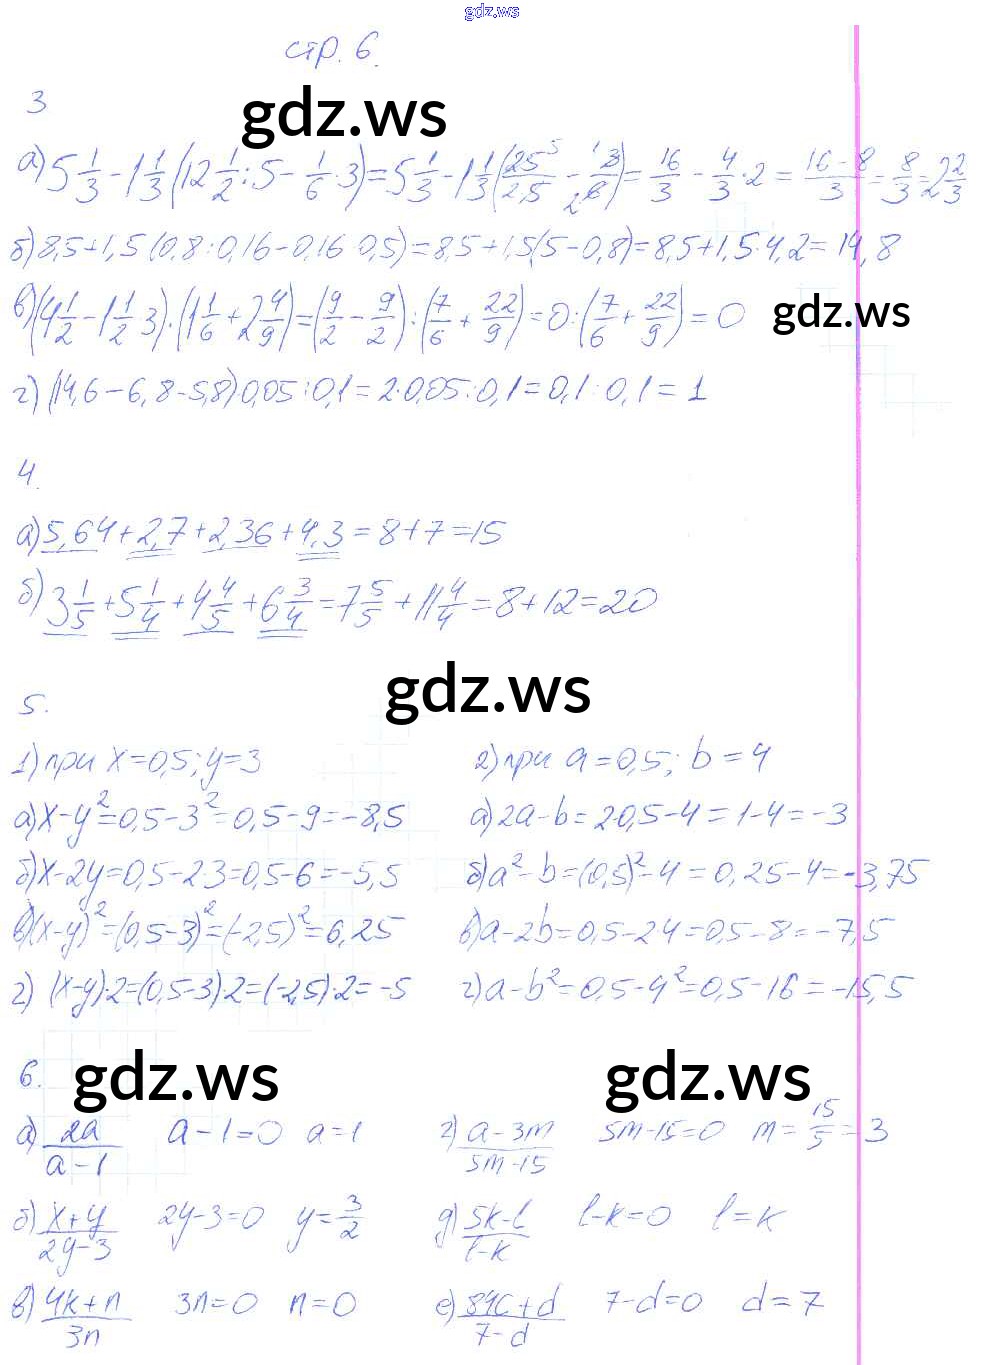 gdz.ws
стр. 6.
3
gdz.ws
а) 5 1/3 - 1 1/3 (12 1/2 : 5 - 1/6 · 3) = 5 1/3 - 1 1/3 (25 5/2·5 - 1 3/2 6) = 16/3 - 4/3 · 2 = 16-8/3 = 8/3 = 2 2/3
б) 8,5+1,5 (0,8 : 0,16 - 0,16 · 0,5) = 8,5+1,5(5-0,8) = 8,5+1,5·4,2 = 14,8
в) (4 1/2 - 1 1/2 · 3) · (1 1/6 + 2 4/9) = (9/2 - 9/2) : (7/6 + 22/9) = 0 : (7/6 + 22/9) = 0
gdz.ws
г) (14,6-6,8-5,8)·0,05 : 0,1 = 2·0,05 : 0,1 = 0,1 : 0,1 = 1
4.
а) 5,64+2,7+2,36+4,3 = 8+7 = 15
б) 3 1/5 + 5 1/4 + 4 4/5 + 6 3/4 = 7 5/5 + 11 4/4 = 8+12 = 20
gdz.ws
5.
1) при x=0,5; y=3
2) при a=0,5; b=4
а) x-y²=0,5-3²=0,5-9=-8,5
а) 2a-b=2·0,5-4=1-4=-3
б) x-2y=0,5-2·3=0,5-6=-5,5
б) a²-b=(0,5)²-4=0,25-4=-3,75
в) (x-y)²=(0,5-3)²=(-2,5)²=6,25
в) a-2b=0,5-2·4=0,5-8=-7,5
г) (x-y)·2=(0,5-3)·2=(-2,5)·2=-5
г) a-b²=0,5-4²=0,5-16=-15,5
6.
gdz.ws gdz.ws
а) 2a/a-1 a-1=0 a=1
г) a-3m/5m-15 5m-15=0 m=15/5=3
б) x+y/2y-3 2y-3=0 y=3/2
д) 5k-l/l-k l-k=0 l=k
в) 4k+n/3n 3n=0 n=0
е) 84c+d/7-d 7-d=0 d=7